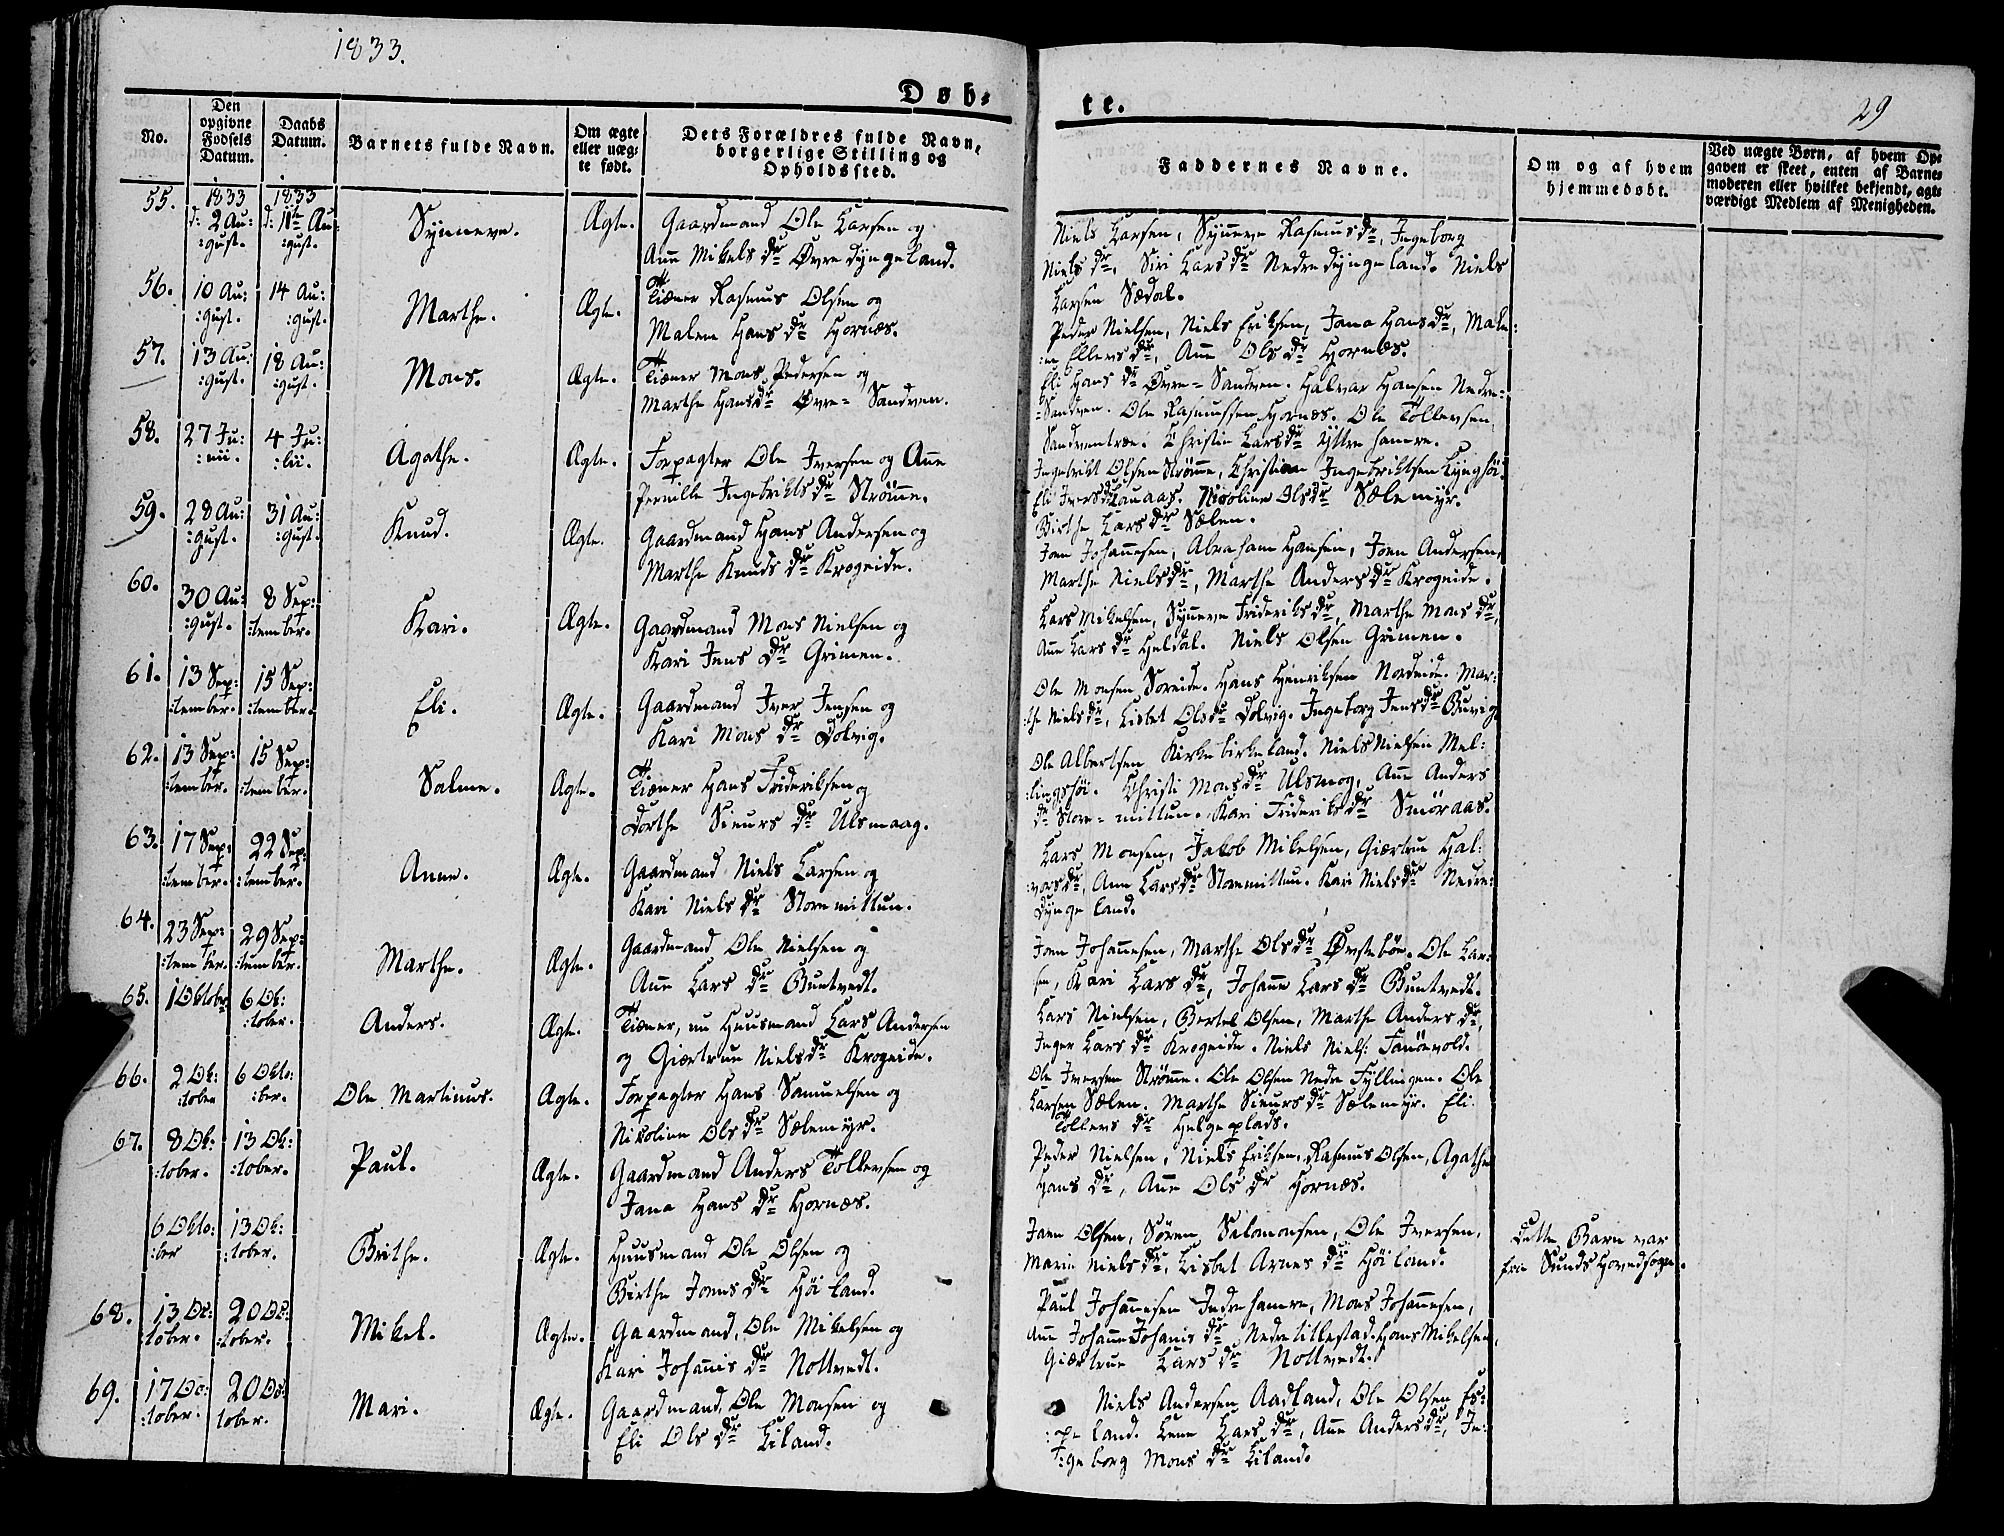 1833.
Døb-
te.
29
No.
Den opgivne Fødsels Datum.
Daabs Datum.
Barnets fulde Navn.
Om ægte eller uægte født.
Dets Forældres fulde Navn, borgerlige Stilling og Opholdssted.
Faddernes Navne.
Om og af hvem hjemmedøbt.
Ved uægte Børn, af hvem Opgaven er skeet, enten af Barnemoderen eller hvilket bekjendt, agtværdigt Medlem af Menigheden.
55.
1833
d: 2 Au:
:gust.
1833
d: 11te Au:
:gust.
Synneve.
Ægte.
Gaardmand Ole Larsen og
Anne Mikels dr Øvre Dyngeland.
Niels Larsen, Synneve Rasmusdr, Ingeborg
Niels dr, Siri Lars dr Nedre Dyngeland. Niels
Larsen Sædal.
56.
10 Au:
:gust.
14 Au:
:gust.
Marthe.
Ægte.
Tiener Rasmus Olsen og
Malene Hans dr Hornæs.
Peder Nielsen, Niels Eriksen, Jana Hansdr, Male:
:ne Ellevs dr, Anne Ols dr Hornæs.
57.
13 Au:
:gust.
18 Au:
:gust.
Mons.
Ægte.
Tiener Mons Pedersen og
Marthe Hansdr Øvre- Sandven.
Eli Hans dr Øvre-Sandven. Halvar Hansen Nedre-
-Sandven. Ole Rasmussen Hornæs. Ole Tollevsen
Sandventræe. Christie Larsdr Yttre hamre.
58.
27 Ju:
:nii.
4 Ju:
:lii.
Agathe.
Ægte.
Forpagter Ole Iversen og Anne
Pernille Ingebrikts dr Strømme.
Ingebrikt Olsen Strømme, Christian Ingebriktsen Lynghøi.
Eli Iversdr Rauaas. Nicoline Olsdr Sælemyr.
Birthe Lars dr Sælen.
59.
28 Au:
:gust.
31 Au:
:gust.
Knud.
Ægte.
Gaardmand Hans Andersen og
Marthe Knuds dr Krogeide.
Joen Johannesen, Abraham Hansen, Joen Andersen,
Marthe Nielsdr, Marthe Andersdr Krogeide.
60.
30 Au:
:gust.
8 Sep:
:tember.
Kari.
Ægte.
Gaardmand Mons Nielsen og
Kari Jens dr Grimen.
Lars Mikelsen, Synneve Frideriksdr, Marthe Mons dr,
Anne Lars dr Heldal. Niels Olsen Grimen.
61.
13 Sep:
:tember.
15 Sep:
:tember.
Eli.
Ægte.
Gaardmand Iver Jensen og
Kari Mons dr Dolvig.
Ole Monsen Soreide. Hans Henriksen Nordeide. Mar:
:the Nielsdr, Lisbet Olsdr Dolvig. Ingeborg Jensdr Buvig
62.
13 Sep:
:tember.
15 Sep:
:tember.
Salme.
Ægte.
Tiener Hans Frideriksen og
Dorthe Sieurs dr Ulsmaag.
Ole Albertsen Kirkebirkeland. Niels Nielsen Mel:
:lingshøi. Christi Monsdr Ulsmog, Anne Anders
dr Store-mittun. Kari Frideriks dr Smøraas.
63.
17 Sep:
:tember.
22 Sep:
:tember.
Anne.
Ægte.
Gaardmand Niels Larsen og
Kari Niels dr Storemittun.
Lars Monsen, Jakob Mikelsen, Giertrue Hal:
:vorsdr, Anne Larsdr Storemittun. Kari Nielsdr Nedre:
Dyngeland.
64.
23 Sep:
:tember.
29 Sep:
:tember.
Marthe.
Ægte.
Gaardmand Ole Nielsen og
Anne Lars dr Buntvedt.
Joen Johannesen, Marthe Olsdr Øvstebøe. Ole Lar:
sen, Kari Lars dr, Johanne Larsdr Buntvedt.
65.
1 Oktober
6 Ok:
:tober.
Anders.
Ægte.
Tiener, nu Huusmand Lars Andersen
og Giertrue Nielsdr Krogeide.
Lars Nielsen, Bertel Olsen, Marthe Anders dr,
Inger Lars dr Krogeide. Niels Niels: Fanøevold.
66.
2 Ok:
:tober
6 Okto:
:ber.
Ole Martinus.
Ægte.
Forpagter Hans Samuelsen og
Nikoline Ols dr Sælemyr.
Ole Iversen Strømme. Ole Olsen Nedre Fyllingen. Ole
Larsen Sælen. Marthe Sieurs dr Sælemyr. Eli
Tollevs dr Helgeplads.
67.
8 Ok:
:tober.
13 Ok:
:tober.
Paul.
Ægte.
Gaardmand Anders Tollevsen og
Jana Hans dr Hornæs.
Peder Nielsen, Niels Eriksen, Rasmus Olsen, Agathe
Hans dr, Anne Ols dr Hornæs.
6 Okto:
:ber
13 Ok:
:tober.
Brithe.
Ægte.
Huusmand Ole Olsen og
Birthe Joens dr Høiland.
Joen Olsen, Søren Salomonsen, Ole Iversen,
Marie Nielsdr, Lisbet Arnes dr Høiland.
Dette Barn var
fra Sunds Hovedsogn.
68.
13 Oc:
:tober.
20 Oc:
:tober.
Mikel.
Ægte.
Gaardmand, Ole Mikelsen og
Kari Johannis dr Nottvedt.
Paul Johannesen Indrehamre, Mons Johannesen,
Anne Johanne Johanis dr Nedretitlestad. Hans Mikelsen,
Giertrue Lars dr Nottvedt.
69.
17 Oc:
:tober.
20 Oc:
:tober.
Mari.
Ægte.
Gaardmand, Ole Monsen og
Eli Ols dr Liland.
Niels Andersen Aadland, Ole Olsen Es:
:peland. Lene Lars dr, Anne Andersdr, In:
:geborg Mons dr Liland.